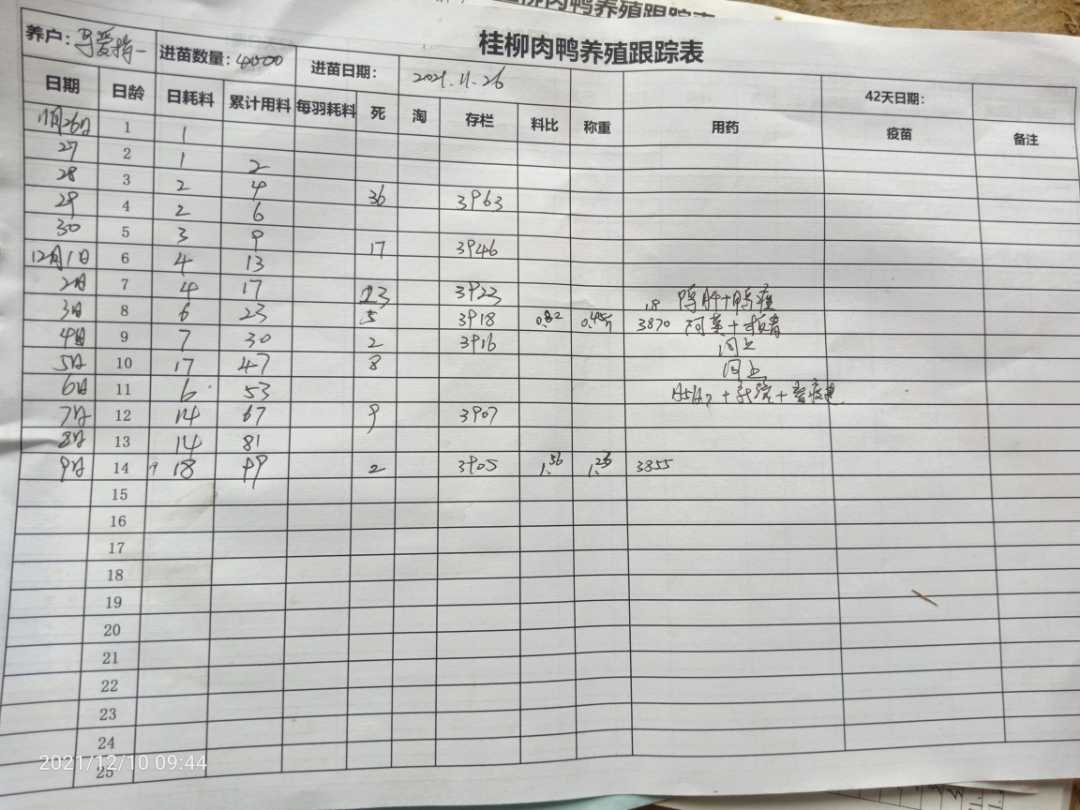 桂柳肉鸭养殖跟踪表
养户: 进苗数量:4000 进苗日期: 2021.11.26 42天日期:
日期 日龄 日耗料 累计用料 每羽耗料 死 淘 存栏 料比 称重 用药 疫苗 备注
11月26日 1 1
27 2 1 2
28 3 2 4 36 3963
29 4 2 6
30 5 3 9 17 3946
12月1日 6 4 13
2日 7 4 17 23 3923
3日 8 6 23 5 3918 0.82 3870
4日 9 7 30 2 3916 同上
5日 10 17 47 8 同上
6日 11 6 53
7日 12 14 67 9 3907
8日 13 14 81
9日 14 18 99 2 3905 1.56 1.26 3855
15
16
17
18
19
20
21
22
23
24
25
2021/12/10 09:44